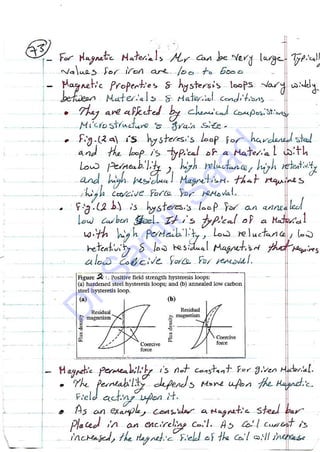 73
- For Magnetic Materials Mr can be very large. Typical
values for iron are 100 to 6000
- Magnetic Properties & hysteresis loops vary widely
between Materials & Material conditions
• They are affected by chemical compositions,
Microstructure & grain size.
• Fig.(2a) is hysteresis loop for hardened steel
and the loop is typical of a Material with
Low permeability, high reluctance, high retentivity
and high residual Magnetism that requires
high coercive Force for removal.
• Fig.(2b) is hysteresis loop for an annealed
low carbon steel. It is typical of a Material
with high permeability, Low reluctance, low
retentivity & low residual Magnetism that requires
a low coercive force for removal.
Figure 2 : Positive field strength hysteresis loops:
(a) hardened steel hysteresis loops; and (b) annealed low carbon
steel hysteresis loop.
(a) (b)
Residual
magnetism
Flux density
Coercive
force
Residual
magnetism
Flux density
Coercive
force
- Magnetic permeability is not constant For given Material.
• The permeability depends More upon the Magnetic
Field acting upon it.
• As an example, consider a Magnetic steel bar
placed in an encircling coil. As coil current is
increased, the Magnetic Field of the coil will increase